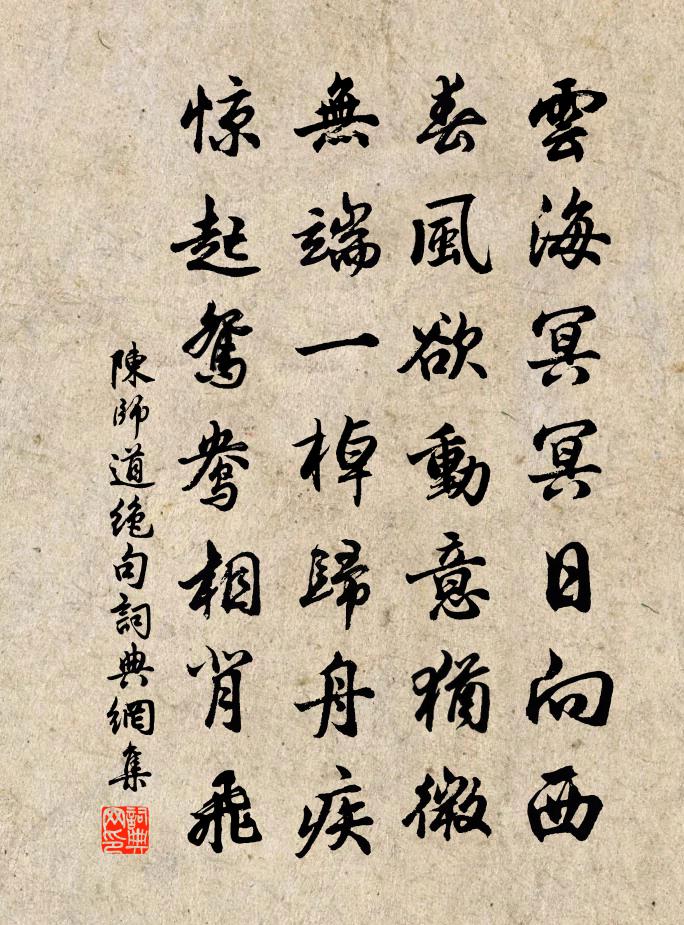 雲海冥冥日向西
春風欲動意猶微
無端一棹歸舟疾
惊起鴛鴦相背飛
陳師道絶句詞典網集
詞典网印